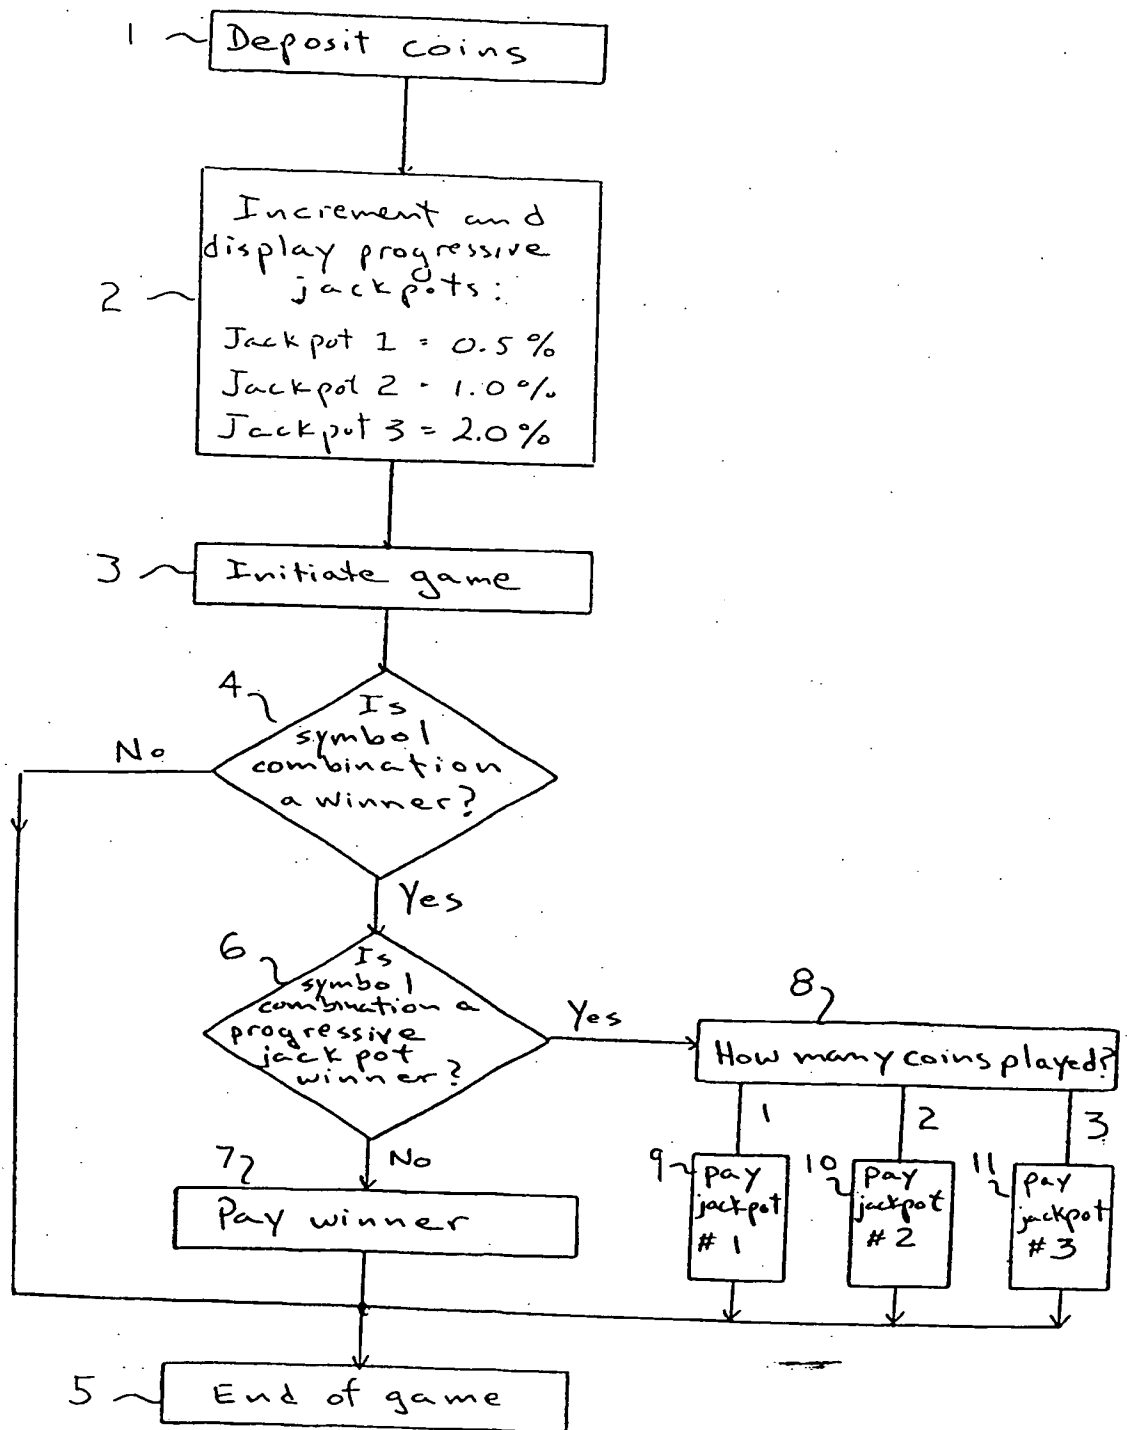 1
Deposit coins
Increment and
display progressive
jackpots:
2
Jackpot 1 = 0.5%
Jackpot 2 - 1.0%
Jackpot 3 = 2.0%
3
Initiate game
4
Is
symbol
combination
a winner?
No
Yes
6
Is
symbol
combination a
progressive
jackpot
winner?
Yes
8
How many coins played?
1
2
3
No
7
Pay winner
9
pay
jackpot
# 1
10
pay
jackpot
# 2
11
pay
jackpot
# 3
5
End of game